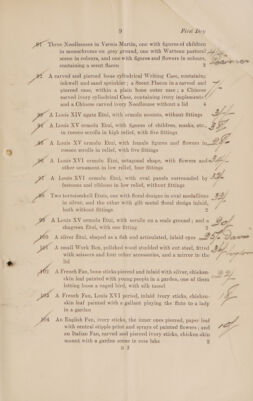 9 First Day
91 Three Necessaires in Vernis Martin, one with figures of children
in monochrome on grey ground, one with Watteau pastoral
scene in colours, and one with figures and flowers in colours,
containing a scent flacon 3
92 A carved and pierced bone cylindrical Writing Case, containing
inkwell and sand sprinkler; a Scent Flacon in a carved and
pierced case, within a plain bone outer case; a Chinese
carved ivory cylindrical Case, containing ivory implements
and a Chinese carved ivory Needlecase without a lid 4
93 A Louis XIV agate Etui, with ormolu mounts, without fittings
94 A Louis XV ormolu Etui, with figures of children, masks, etc.,
in rococo scrolls in high relief, with five fittings
95 A Louis XV ormolu Etui, with female figures and flowers in
rococo scrolls in relief, with five fittings
96 A Louis XVI ormolu Etui, octagonal shape, with flowers and
other ornament in low relief, four fittings
97 A Louis XVI ormolu Etui, with oval panels surrounded by
festoons and ribbons in low relief, without fittings
98 Two tortoiseshell Etuis, one with floral designs in oval medallions
in silver, and the other with gilt metal floral design inlaid,
both without fittings 2
99 A Louis XV ormolu Etui, with scrolls on a scale ground; and a
shagreen Etui, with one fitting 2
100 A silver Etui, shaped as a fish and articulated, inlaid eyes
101 A small Work Box, polished wood studded with cut steel, fitted
with scissors and four other accessories, and a mirror in the
lid
102 A French Fan, bone sticks pierced and inlaid with silver, chicken-
skin leaf painted with young people in a garden, one of them
letting loose a caged bird, with silk tassel
103 A French Fan, Louis XVI period, inlaid ivory sticks, chicken-
skin leaf painted with a gallant playing the flute to a lady
in a garden
104 An English Fan, ivory sticks, the inner ones pierced, paper leaf
with central stipple print and sprays of painted flowers; and
an Italian Fan, carved and pierced ivory sticks, chicken-skin
mount with a garden scene in rose lake 2